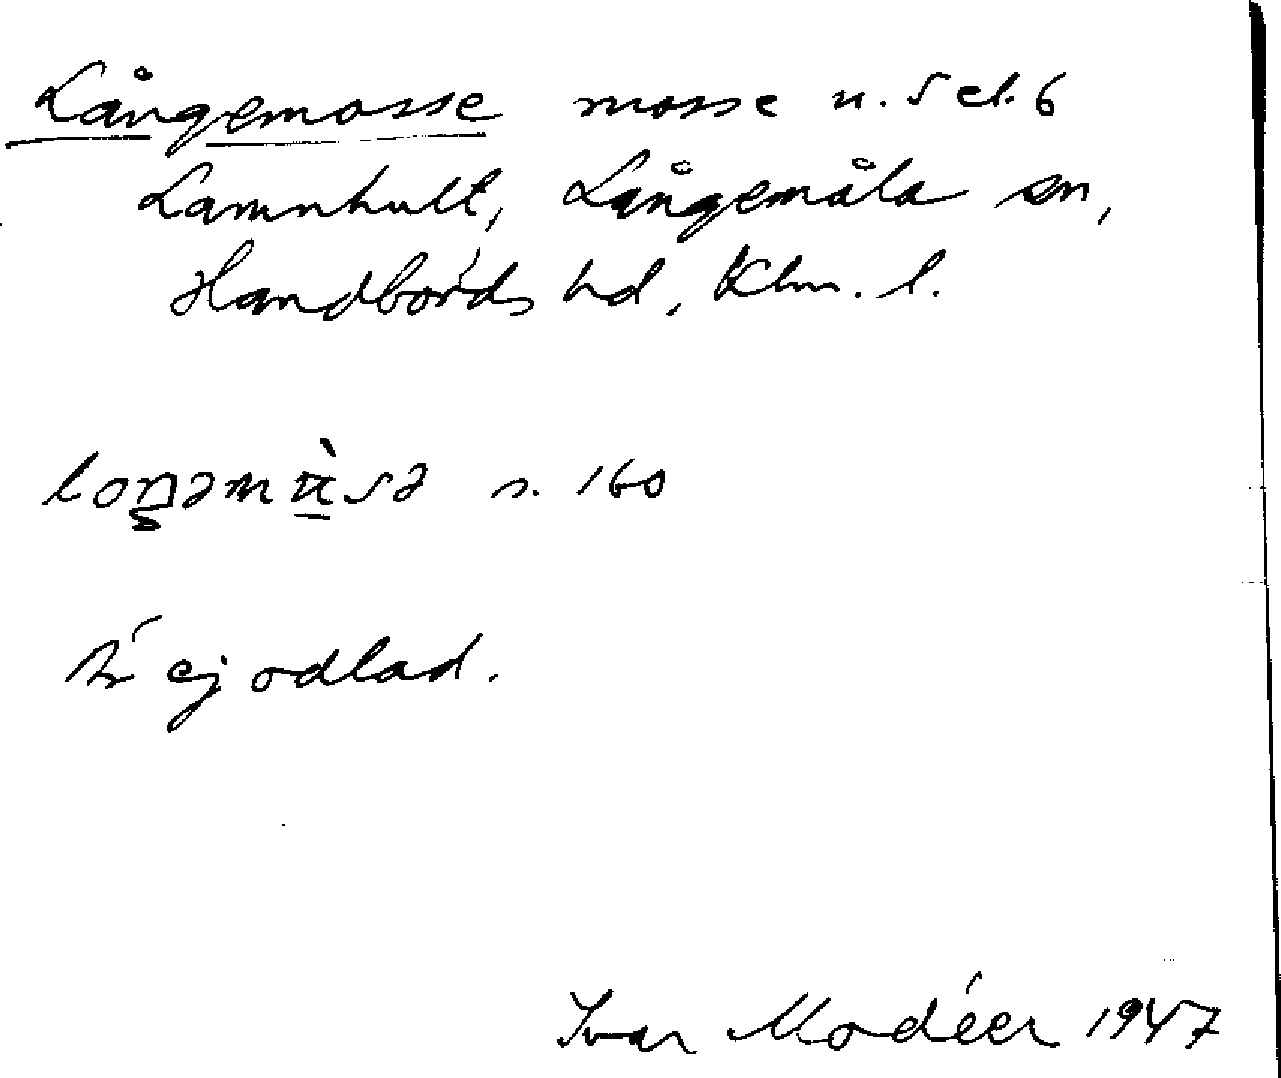 Långemosse mosse u. 5 el. 6
Lamnhult, Långemåla sn,
Handbörds hd, Klm. l.
s. 160
Är ej odlad.
Ivar Modéer 1947